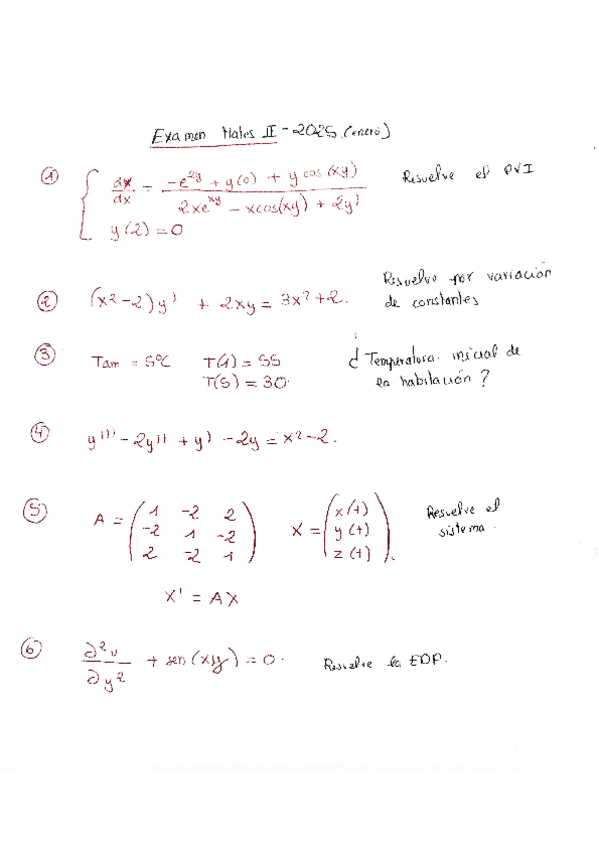 Examen Mates II - 2025 (enero)
① { dy/dx = (-e^2y + y(0) + y cos (xy)) / (2xe^xy - xcos(xy) + 2y) Resuelve el PVI
y(2) = 0
② (x² - 2) y' + 2xy = 3x² + 2. Resuelve por variación
de constantes
③ Tam = 5ºC T(1) = 55 ¿Temperatura inicial de
T(5) = 30. la habitación?
④ y''' - 2y'' + y' - 2y = x² - 2.
⑤ A = ( 1 -2 2 X = ( x(t) Resuelve el
-2 1 -2 y(t) sistema.
2 -2 1 ) z(t) ).
X' = AX
⑥ ∂²u/∂y² + sen(xy) = 0. Resuelve la EDP.